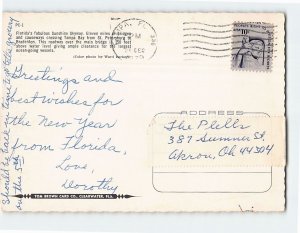 Florida's fabulous Sunshine Skyway. Eleven miles of bridges
and causeways crossing Tampa Bay from St. Petersburg to
Bradenton. This roadway over the main bridge is 150 feet
above water level giving ample clearance for the largest
ocean-going vessels.
(Color photo by Ward Beckett)
Greetings and
best wishes for
the New Year
from Florida.
Love,
Dorothy
Should be back in time to go to the
on the 5th
TOM BROWN CARD CO., CLEARWATER, FLA.
PM
DEC
10c
ADDRESS
The Plells
387 Sumner St,
Akron, Oh 44304